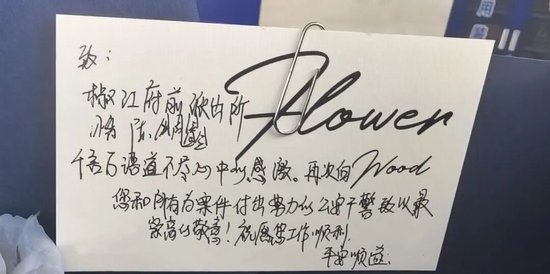 致：
椒江府前派出所
Flower
千言万语道不尽心中的感激。再次向
Wood
您和所有为案件付出努力的公安干警致以最
崇高的敬意！祝愿您工作顺利
平安顺遂
用